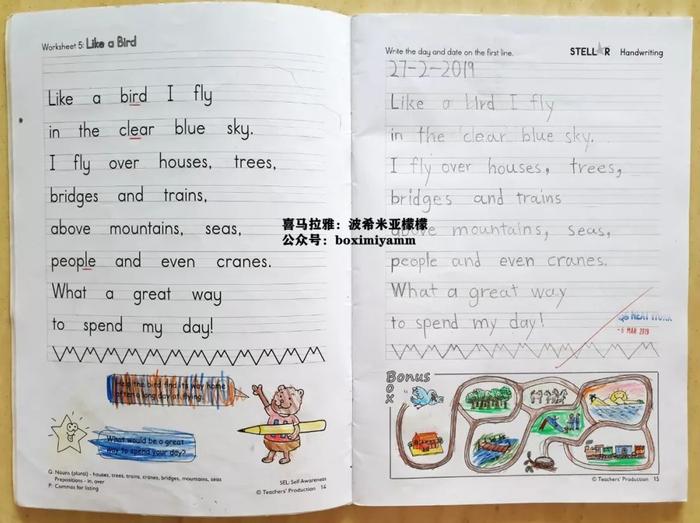 Worksheet 5: Like a Bird
Like a bird I fly
in the clear blue sky.
I fly over houses, trees,
bridges and trains,
above mountains, seas,
people and even cranes.
What a great way
to spend my day!
Help the bird find its way home
after a long day of flying.
What would be a great
way to spend your day?
G: Nouns (plural) - houses, trees, trains, cranes, bridges, mountains, seas
Prepositions - in, over
P: Commas for listing
SEL: Self Awareness
© Teachers' Production 14
Write the day and date on the first line.
STELLAR Handwriting
27-2-2019
Like a bird I fly
in the clear blue sky.
I fly over houses, trees,
bridges and trains
above mountains, seas,
people and even cranes.
What a great way
to spend my day!
NEAT WORK
-6 MAR 2019
Bonus
BOX
© Teachers' Production 15
喜马拉雅：波希米亚檬檬
公众号：boximiyamm